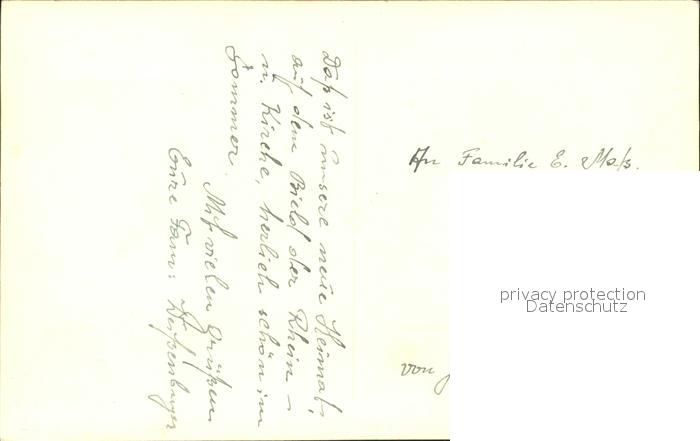 Daß ist unsere neue Heimat,
auf dem Bield der Rhein –
u. Kirche, herlich schön im
Sommer.
Mit vielen Grüßen
Eure Fam:
An Familie E.
von
privacy protection
Datenschutz